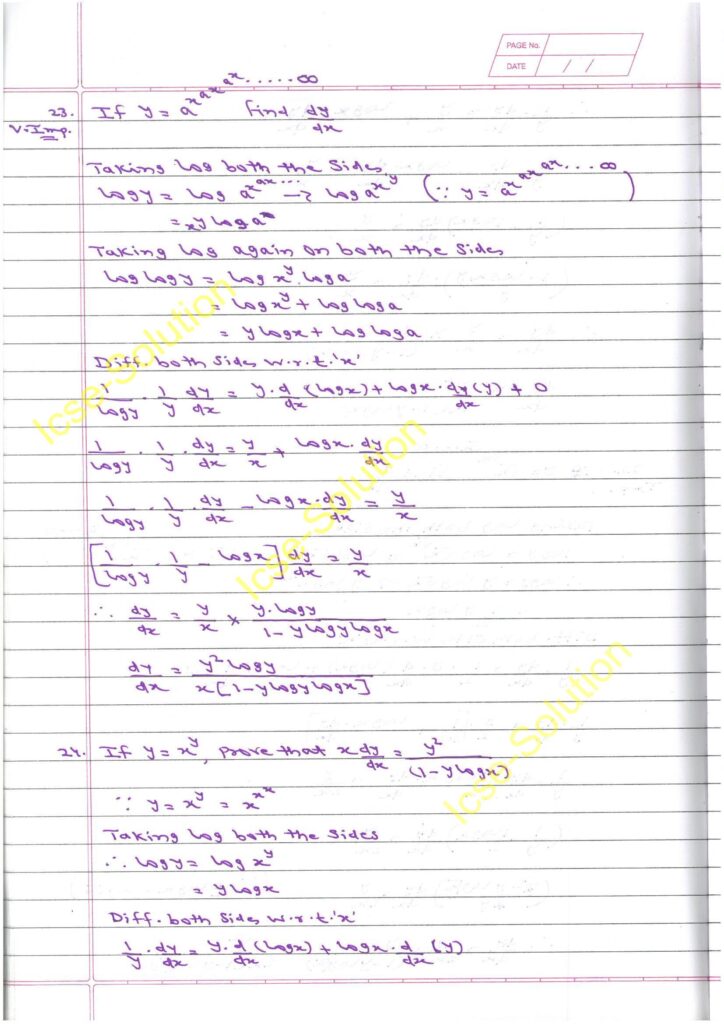 PAGE No.
DATE / /
23. If y = a^x^a^x^a^x.....∞ find dy/dx
V.Imp.
Taking log both the sides
log y = log a^x^a^x... → log a^x^y (∵ y = a^x^a^x^a^x...∞)
= x^y log a
Taking log again on both the sides
log log y = log x^y . log a
= log x^y + log log a
= y log x + log log a
Diff. both sides w.r.t. 'x'
1/log y . 1/y dy/dx = y . d/dx (log x) + log x . dy/dx (y) + 0
1/log y . 1/y . dy/dx = y/x + log x . dy/dx
1/log y . 1/y . dy/dx - log x . dy/dx = y/x
[1/log y . 1/y - log x] dy/dx = y/x
∴ dy/dx = y/x × y.log y/1 - y log y log x
dy/dx = y² log y/x[1 - y log y log x]
24. If y = x^y, prove that x dy/dx = y²/(1 - y log x)
∵ y = x^y = x^x^x
Taking log both the sides
∴ log y = log x^y
= y log x
Diff. both sides w.r.t. 'x'
1/y . dy/dx = y . d/dx (log x) + log x . d/dx (y)
Icse-Solution
Icse-Solution
Icse-Solution